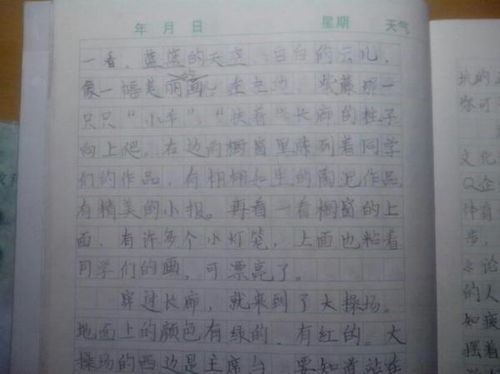 年 月 日 星期 天气
一看,蓝蓝的天空,白白的云儿,
像一幅美丽画,左边,紫藤那一
只只“小车”,“扶着”长廊的柱子
向上爬,右边的橱窗里陈列着同学
们的作品,有栩栩如生的陶泥作品,
有精美的小报。再看一看橱窗的上
面,有许多个小灯笼,上面也粘着
同学们的画,可漂亮了。
穿过长廊,就来到了大操场。
地面上的颜色有绿的,有红的。大
操场的西边是主席台,要知道站在
文化
Q企
的人